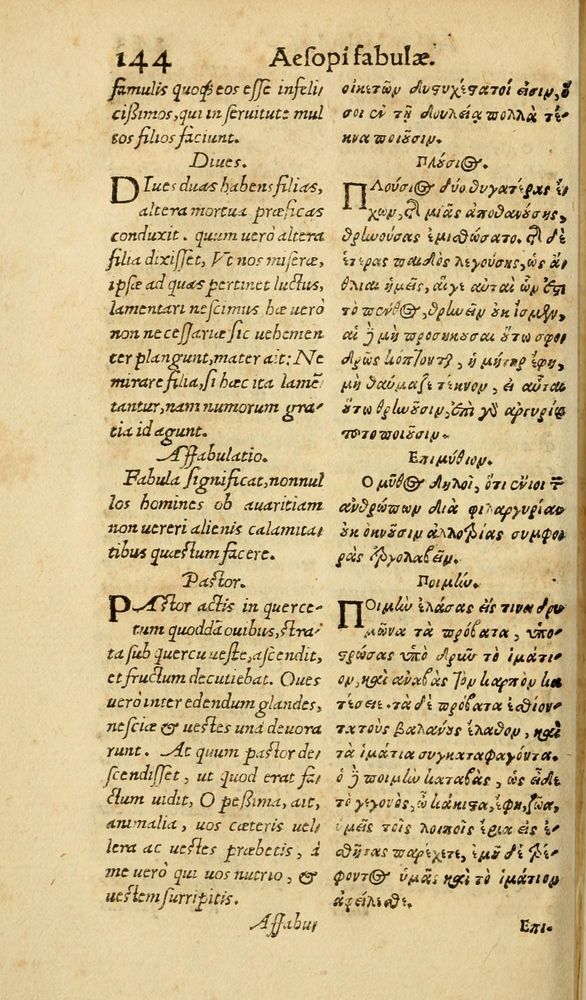 144 Aesopi fabulæ.
famulis quoq; eos esse infeli
cißimos, qui in seruitute mul
tos filios faciunt.
Diues.
DIues duas habens filias,
altera mortua præficas
conduxit. quum uerò altera
filia dixisset, Vt nos miseræ,
ipsæ ad quas pertinet luctus,
lamentari nescimus hæ uerò
non necessariæ sic uehemen
ter plangunt, mater ait: Ne
mirare filia, si hæc ita lamē
tantur, nam numorum gra-
tia id agunt.
Affabulatio.
Fabula significat, nonnul
los homines ob auaritiam
non uereri alienis calamita-
tibus quæstum facere.
Pastor.
PAstor actis in querce-
tum quoddā ouibus, stra-
ta sub quercu ueste, ascendit,
et fructum decutiebat. Oues
uerò inter edendum glandes,
nesciæ & uestes unà deuora
runt. At quum pastor de-
scendisset, ut quod erat fa-
ctum uidit, O peßima, ait,
animalia, uos cæteris uel-
lera ac uestes præbetis, à
me uerò qui uos nutrio, &
uestem surripitis.
Affabu-
οἰκετῶν δυστυχέστατοί εἰσιν, ὅ
σοι ἐν τῇ δουλείᾳ πολλὰ τέ-
κνα ποιοῦσιν.
Πλούσιος.
ΠΛούσιος δύο θυγατέρας ἔ-
χων, τῆς μιᾶς ἀποθανούσης,
θρηνούσας ἐμισθώσατο. τῆς δὲ
ἑτέρας παιδὸς λεγούσης, ὡς ἄ-
θλιαι ἡμεῖς, αἵγε αὐταὶ ὧν ἐστὶ
τὸ πένθος, θρηνεῖν οὐκ ἴσμεν,
αἱ δὲ μὴ προσήκουσαι οὕτω σφο-
δρῶς κόπτονται, ἡ μήτηρ ἔφη,
μὴ θαύμαζε τέκνον, εἰ αὗται
οὕτω θρηνοῦσιν, ἐπὶ γὰρ ἀργυρίῳ
τοῦτο ποιοῦσιν.
Επιμύθιον.
Ο μῦθος δηλοῖ, ὅτι ἔνιοι τῶν
ἀνθρώπων διὰ φιλαργυρίαν
οὐκ ὀκνοῦσιν ἀλλοτρίας συμφο-
ρὰς ἐργολαβεῖν.
Ποιμήν.
ΠΟιμὴν ἐλάσας εἴς τινα δρυ-
μῶνα τὰ πρόβατα, ὑπο-
στρώσας ὑπὸ δρῦν τὸ ἱμάτι-
ον, καὶ ἀναβὰς τὸν καρπὸν κα
τέσειε. τὰ δὲ πρόβατα ἐσθίον-
τα τοὺς βαλάνους ἔλαθον, καὶ
τὰ ἱμάτια συγκαταφαγόντα.
ὁ δὲ ποιμὴν καταβὰς, ὡς εἶδε
τὸ γεγονὸς, ὦ κάκιστα, ἔφη, ζῶα,
ὑμεῖς τοῖς λοιποῖς ἔρια εἰς ἐ-
σθῆτας παρέχετε, ἐμοῦ δὲ τρέ-
φοντος ὑμᾶς καὶ τὸ ἱμάτιον
ἀφείλεσθε.
Επι-